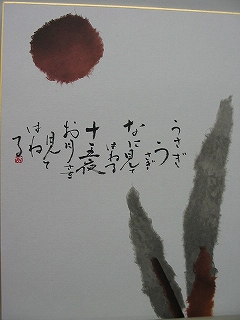 うさぎ
うさぎ
なに見て
はねる
十五夜
お月さま
見て
はね
る